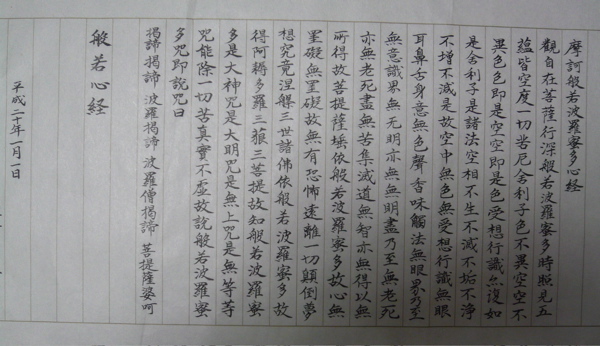 摩訶般若波羅蜜多心経
觀自在菩薩行深般若波羅蜜多時照見五
蘊皆空度一切苦厄舍利子色不異空空不
異色色即是空空即是色受想行識亦復如
是舍利子是諸法空相不生不滅不垢不浄
不増不減是故空中無色無受想行識無眼
耳鼻舌身意無色聲香味觸法無眼界乃至
無意識界無无明亦無無明盡乃至無老死
亦無老死盡無苦集滅道無智亦無得以無
所得故菩提薩埵依般若波羅蜜多故心無
罣礙無罣礙故無有恐怖遠離一切顛倒夢
想究竟涅槃三世諸佛依般若波羅蜜多故
得阿耨多羅三藐三菩提故知般若波羅蜜
多是大神咒是大明咒是無上咒是無等等
咒能除一切苦真實不虚故說般若波羅蜜
多咒即說咒曰
揭諦揭諦 波羅揭諦 波羅僧揭諦 菩提薩婆呵
般若心経
平成二十年一月一日